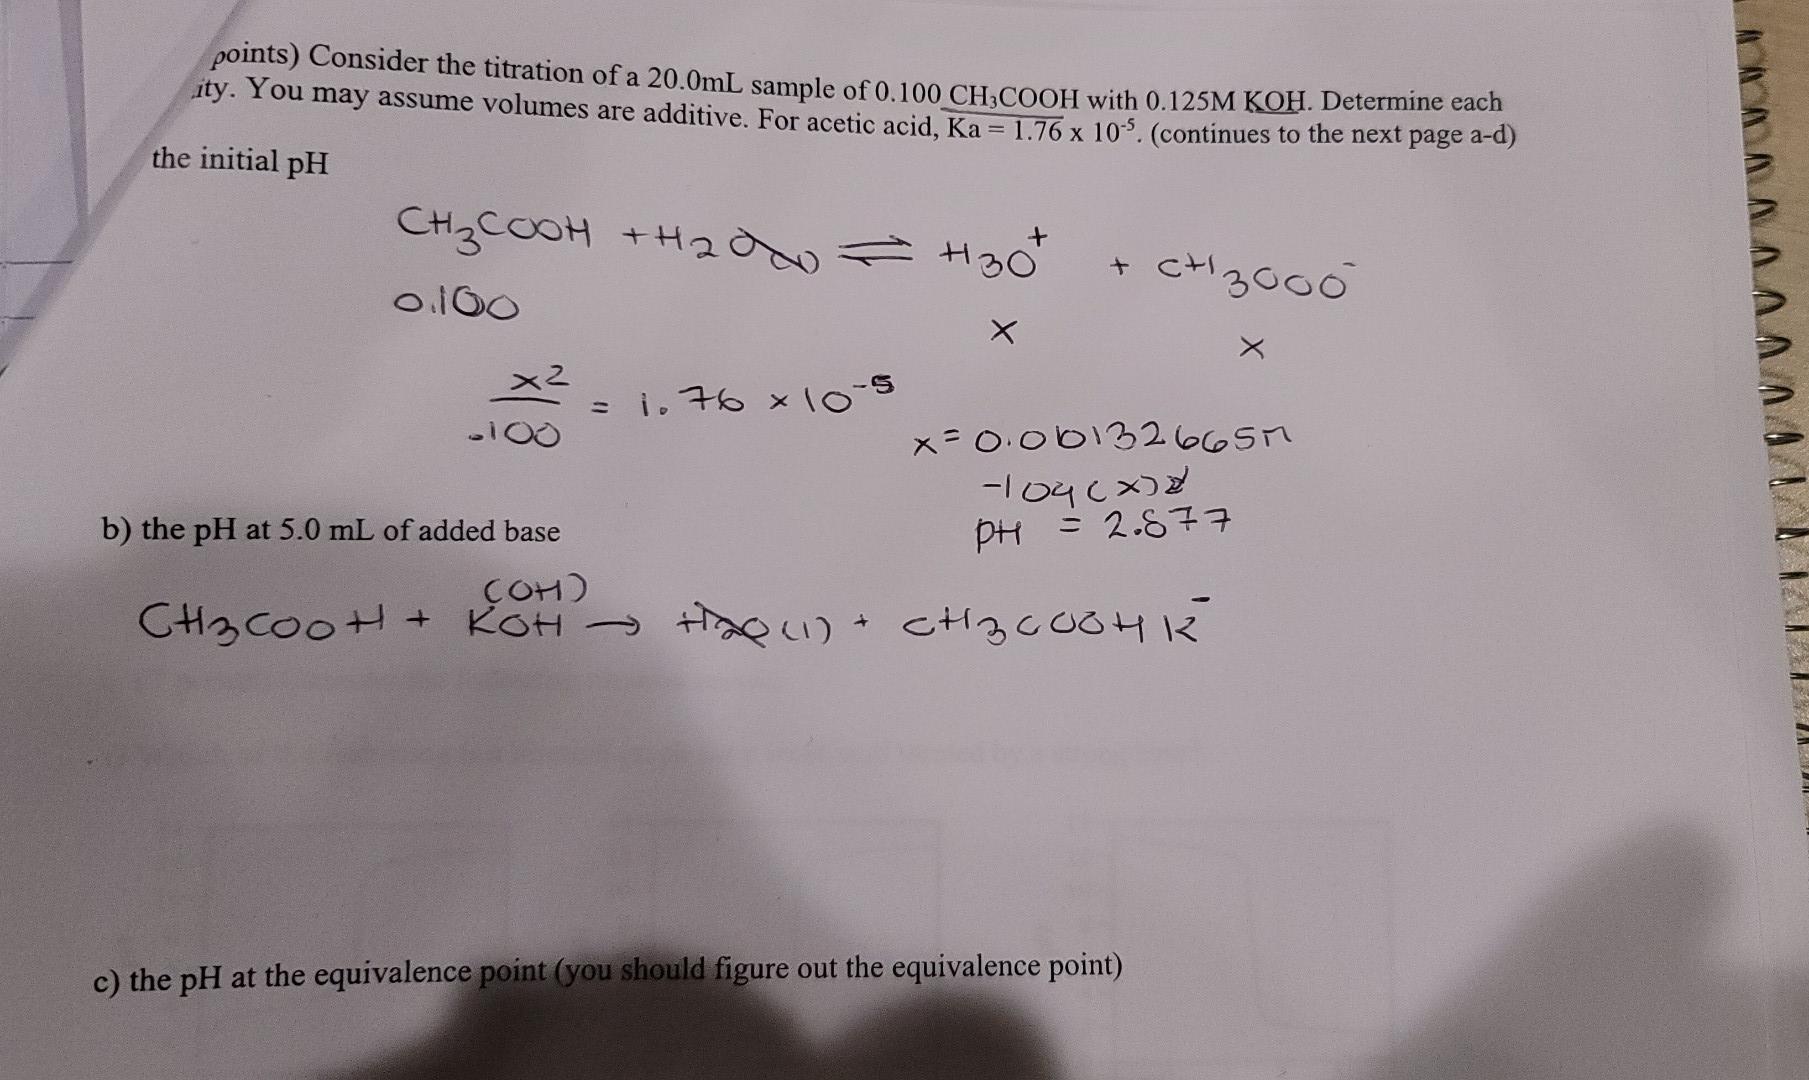 points) Consider the titration of a 20.0mL sample of 0.100 CH₃COOH with 0.125M KOH. Determine each
ity. You may assume volumes are additive. For acetic acid, Ka = 1.76 x 10⁻⁵. (continues to the next page a-d)
the initial pH
CH₃COOH + H₂O(l) ⇌ H₃O⁺ + CH₃COO⁻
0.100 x x
x²/.100 = 1.76 × 10⁻⁵
x = 0.001132665M
-log(x)
pH = 2.877
b) the pH at 5.0 mL of added base
(OH)
CH₃COOH + KOH → H₂O(l) + CH₃COOHK⁻
c) the pH at the equivalence point (you should figure out the equivalence point)